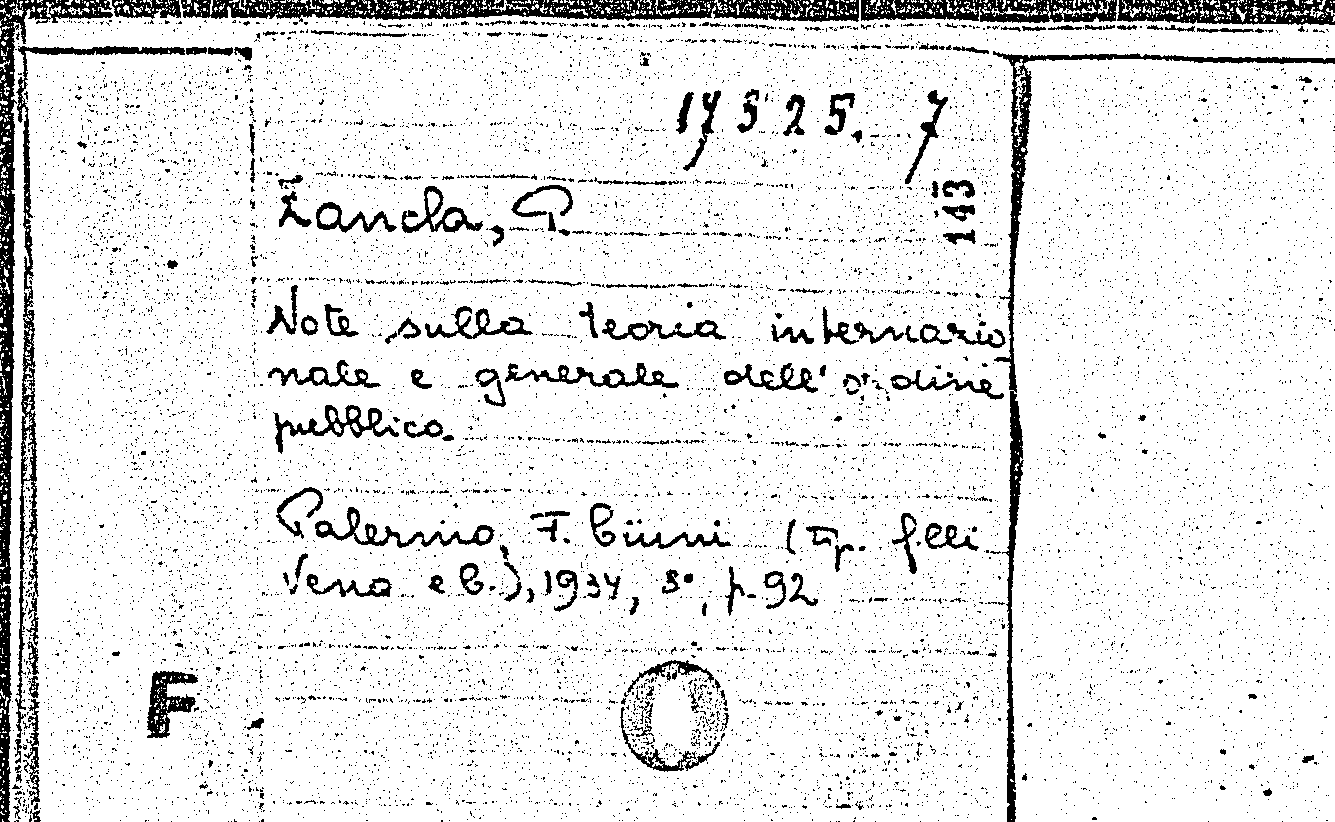 17525. 7
143
Zancla, P.
Note sulla teoria internazio
nale e generale dell'ordine
pubblico.
Palermo, F. Ciuni (Tip. f.lli
Vena e C.), 1934, 8°, p. 92
F